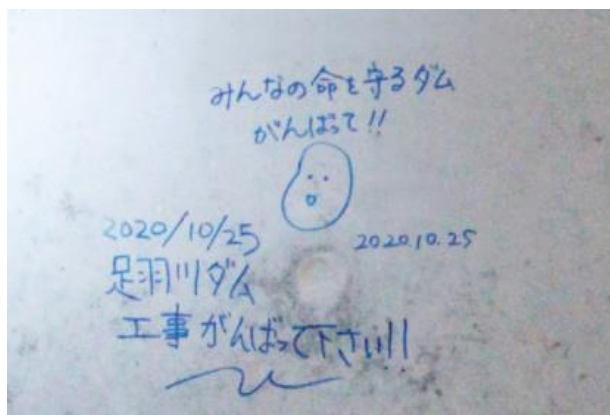 みんなの命を守るダム
がんばって!!
2020/10/25
2020.10.25
足羽川ダム
工事がんばって下さい!!